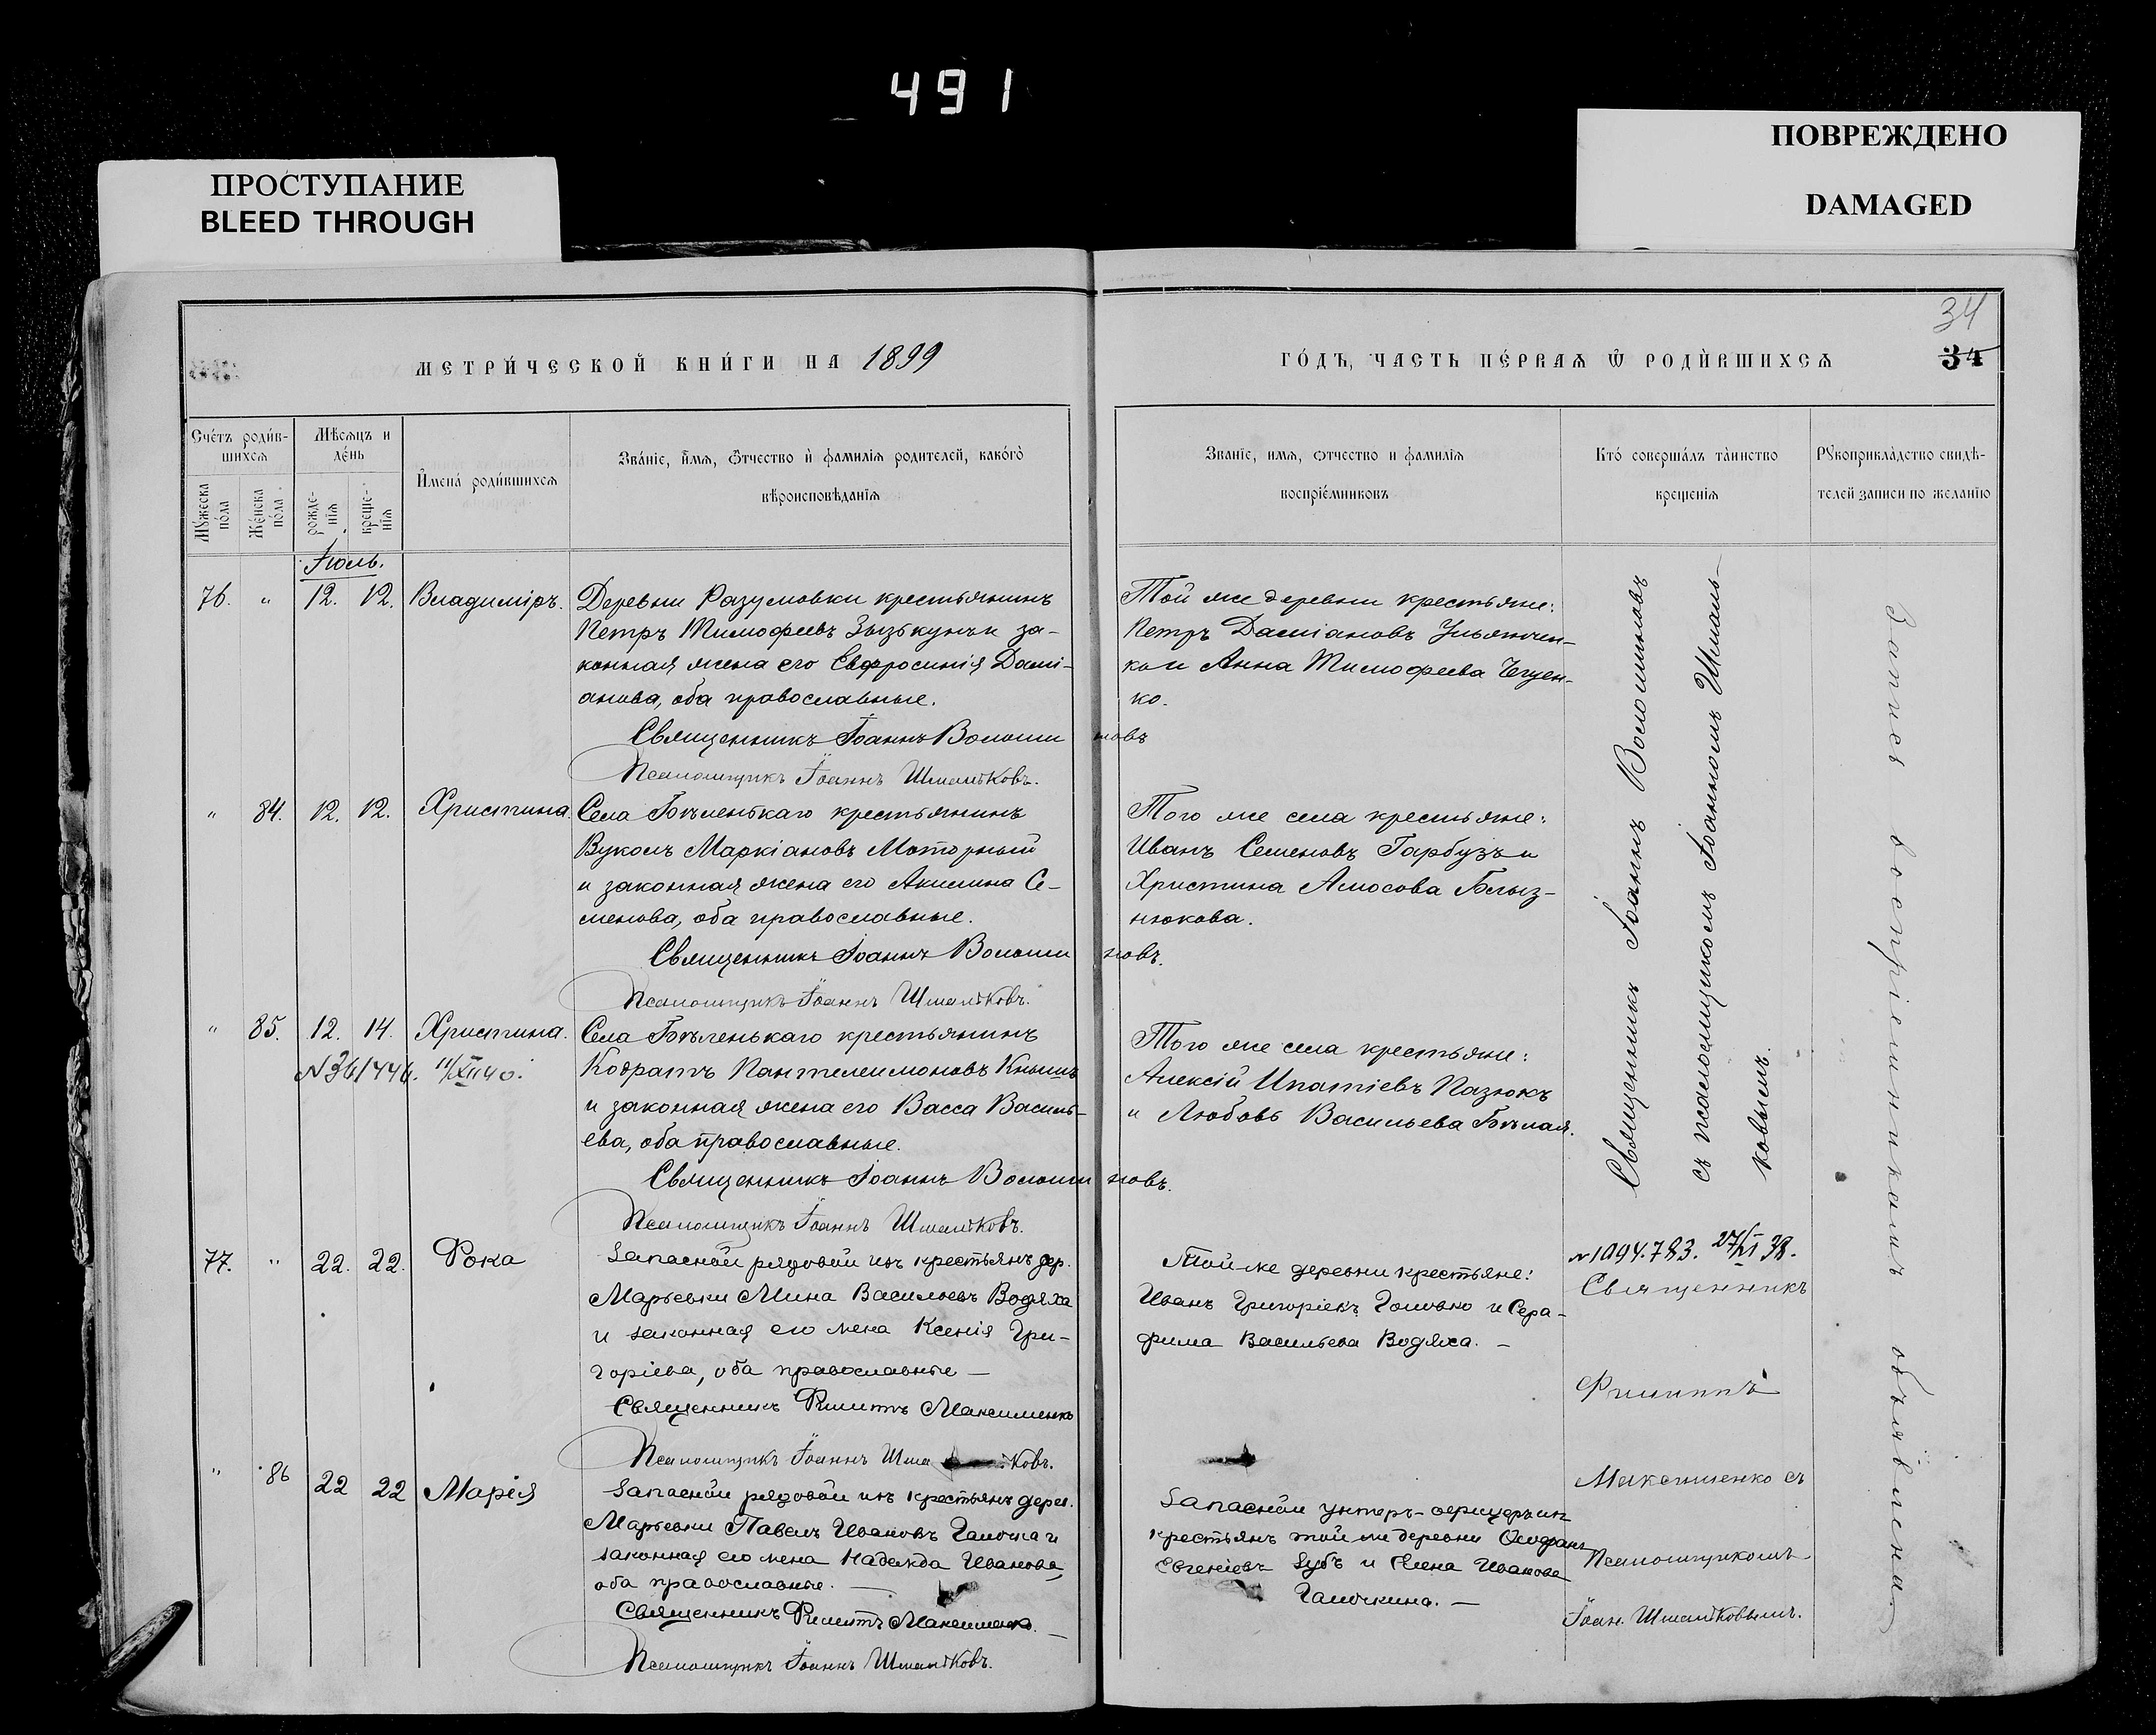 491
ПРОСТУПАНИЕ
BLEED THROUGH
ПОВРЕЖДЕНО
DAMAGED
34
МЕТРИ́ЧЕСКОЙ КНИ́ГИ НА 1899
ГО́ДЪ, ЧАСТЬ ПЕ́РВАЯ Ѿ РОДИ́ВШИХСЯ
34
Сче́тъ роди́в-
шихся
Мѣсяцъ и
де́нь
Му́жеска
по́ла
Же́нска
по́ла
рожде-
нїя
креще-
нїя
И҆мена́ роди́вшихся
Зва́нїе, и҆́мя, ѻ҆́тчество и҆ фамилїя родителей, како́го
вѣроисповѣданїя
Званїе, имя, отчество и фамилїя
воспріе́мниковъ
Кто́ соверша́лъ та́инство
крещенїя
Рꙋкоприкла́дство свидѣ-
телей записи по желанїю
Іюль.
76. " 12. 12. Владиміръ.
Деревни Разумовки крестьянинъ
Петръ Тимофеевъ Зызькунъ и за-
конная жена его Евфросинія Дамі-
анова, оба православные.
Священникъ Іоаннъ Волошиновъ
Псаломщикъ Іоаннъ Шмальковъ.
Той же деревни крестьяне:
Петръ Даміановъ Ульянчен-
ко и Анна Тимофеева
ко.
" 84. 12. 12. Христина.
Села Бѣленькаго крестьянинъ
Вуколъ Маркіановъ Моторный
и законная жена его Акилина Се-
менова, оба православные.
Священникъ Іоаннъ Волошиновъ.
Псаломщикъ Іоаннъ Шмальковъ.
Того же села крестьяне:
Иванъ Семеновъ Гарбузъ и
Христина Амосова Близ-
нюкова.
" 85. 12. 14. Христина.
N361446. 11/XII 40.
Села Бѣленькаго крестьянинъ
Кодратъ Пантелеимоновъ Кнышъ
и законная жена его Васса Василь-
ева, оба православные.
Священникъ Іоаннъ Волошиновъ.
Псаломщикъ Іоаннъ Шмальковъ.
Того же села крестьяне:
Алексій Ипатіевъ Пазюкъ
и Любовь Васильева Бѣлая.
Священникъ Іоаннъ Волошиновъ
съ псаломщикомъ Іоанномъ Шмаль-
ковымъ.
77. " 22. 22. Фока
Запасной рядовой изъ крестьянъ дер.
Марьевки Мина Васильевъ Водяха
и законная его жена Ксенія Гри-
горіева, оба православные —
Священникъ Филиппъ Максименко
Псаломщикъ Іоаннъ Шмальковъ.
Той же деревни крестьяне:
Иванъ Григоріевъ Головко и Сера-
фима Васильева Водяха. —
N1094.783. 27/VI 38.
Священникъ
Филиппъ
Максименко съ
Псаломщикомъ
Іоан. Шмальковымъ.
" 86 22 22 Марія
Запасной рядовой изъ крестьянъ дерев.
Марьевки Павелъ Ивановъ Галочка и
законная его жена Надежда Иванова,
оба православные. —
Священникъ Филиппъ Максименко. —
Псаломщикъ Іоаннъ Шмальковъ.
Запасной унтеръ-офицеръ изъ
крестьянъ той же деревни
Евгеніевъ Зубъ и Елена Иванова
Галочкина. —
Записъ воспріемникамъ объявлена